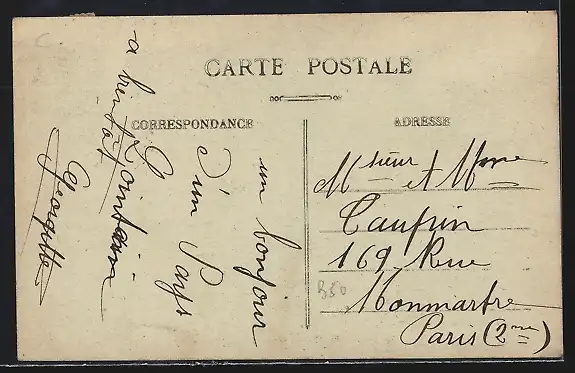 CARTE POSTALE
CORRESPONDANCE
ADRESSE
un bonjour
d'un Pays
Lointain
a bientôt
Georgette
Msieur et Mme
Taupin
169 Rue
Monmartre
Paris (2me)
B50